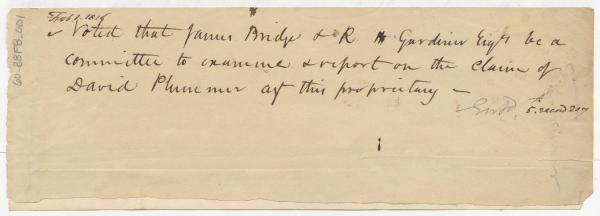 Feb 1. 1816
Voted that James Bridge & R H Gardiner Esqrs be a
committee to examine & report on the claim of
David Plummer agt this propriety —
5. record 207
60-88FB.001